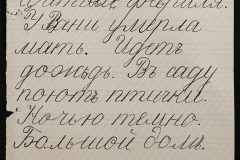 У Вани умерла
мать. Идетъ
дождь. Въ саду
поютъ птички.
Ночью темно.
Большой домъ.